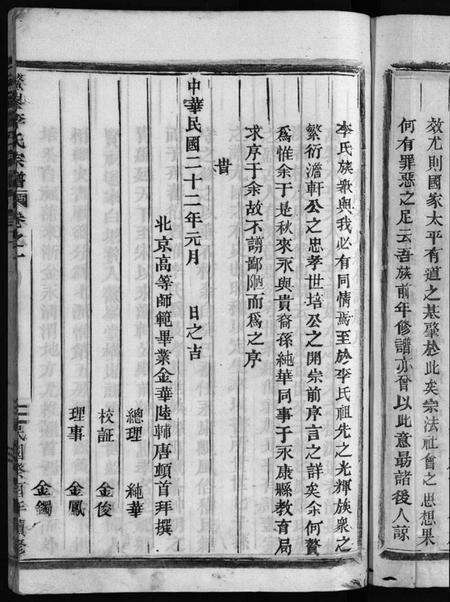 效尤則國家太平有道之基肇於此矣宗法社會之思想果
何有罪惡之足云吾族前年修譜亦曾以此意勗諸後人諒
李氏族衆與我必有同情焉至於李氏祖先之光輝族衆之
繁衍澹軒公之忠孝世培公之開宗前序言之詳矣余何贅
爲惟余于是秋來永與貴裔孫純華同事于永康縣教育局
求序于余故不謭鄙陋而爲之序
旹
中華民國二十二年元月 日之吉
北京高等師範畢業金華陸輔唐頓首拜撰
總理 純華
校証 金俊
理事 金鳳
金鐲
李氏宗譜 卷之一
民國癸酉年續修